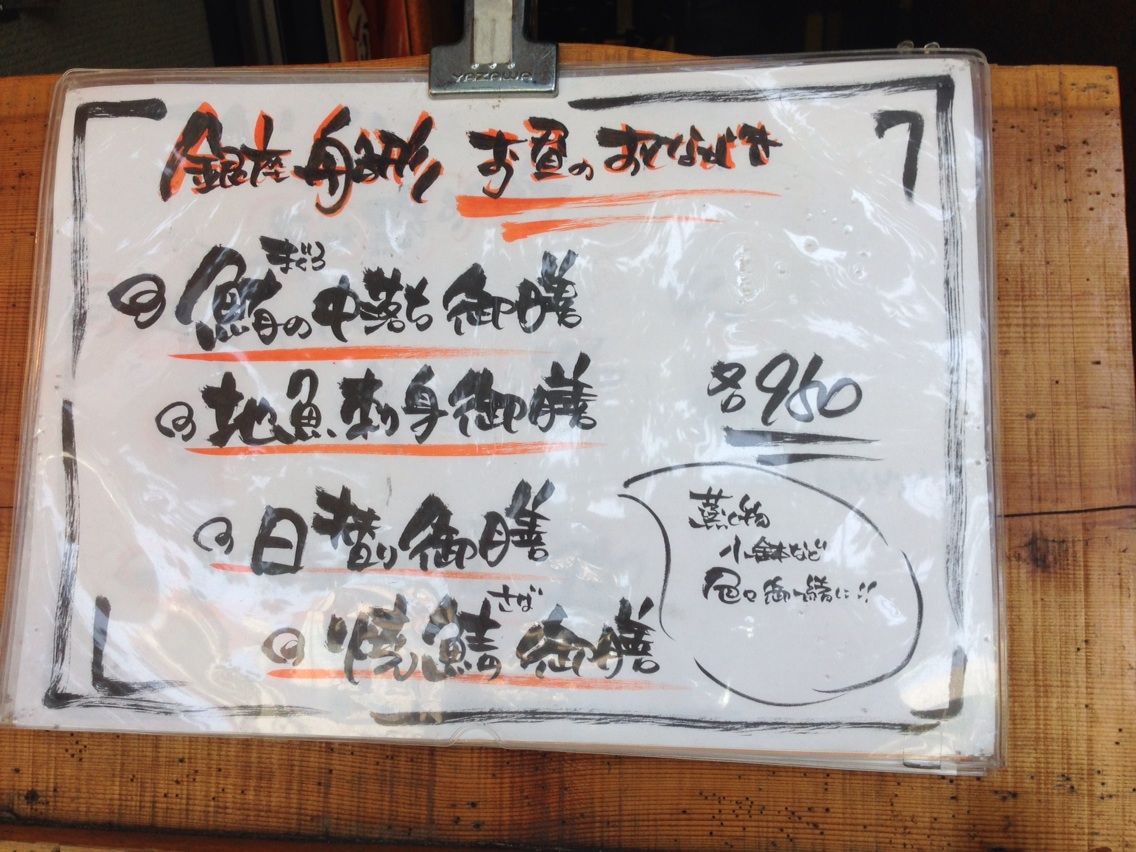 YAZAWA
銀座 舟形 お昼のおしながき
まぐろ
鮪の中落ち御膳
地魚刺身御膳
各960
日替り御膳
さば
焼鯖御膳
蒸し物
小鉢など
色々御一緒に!!